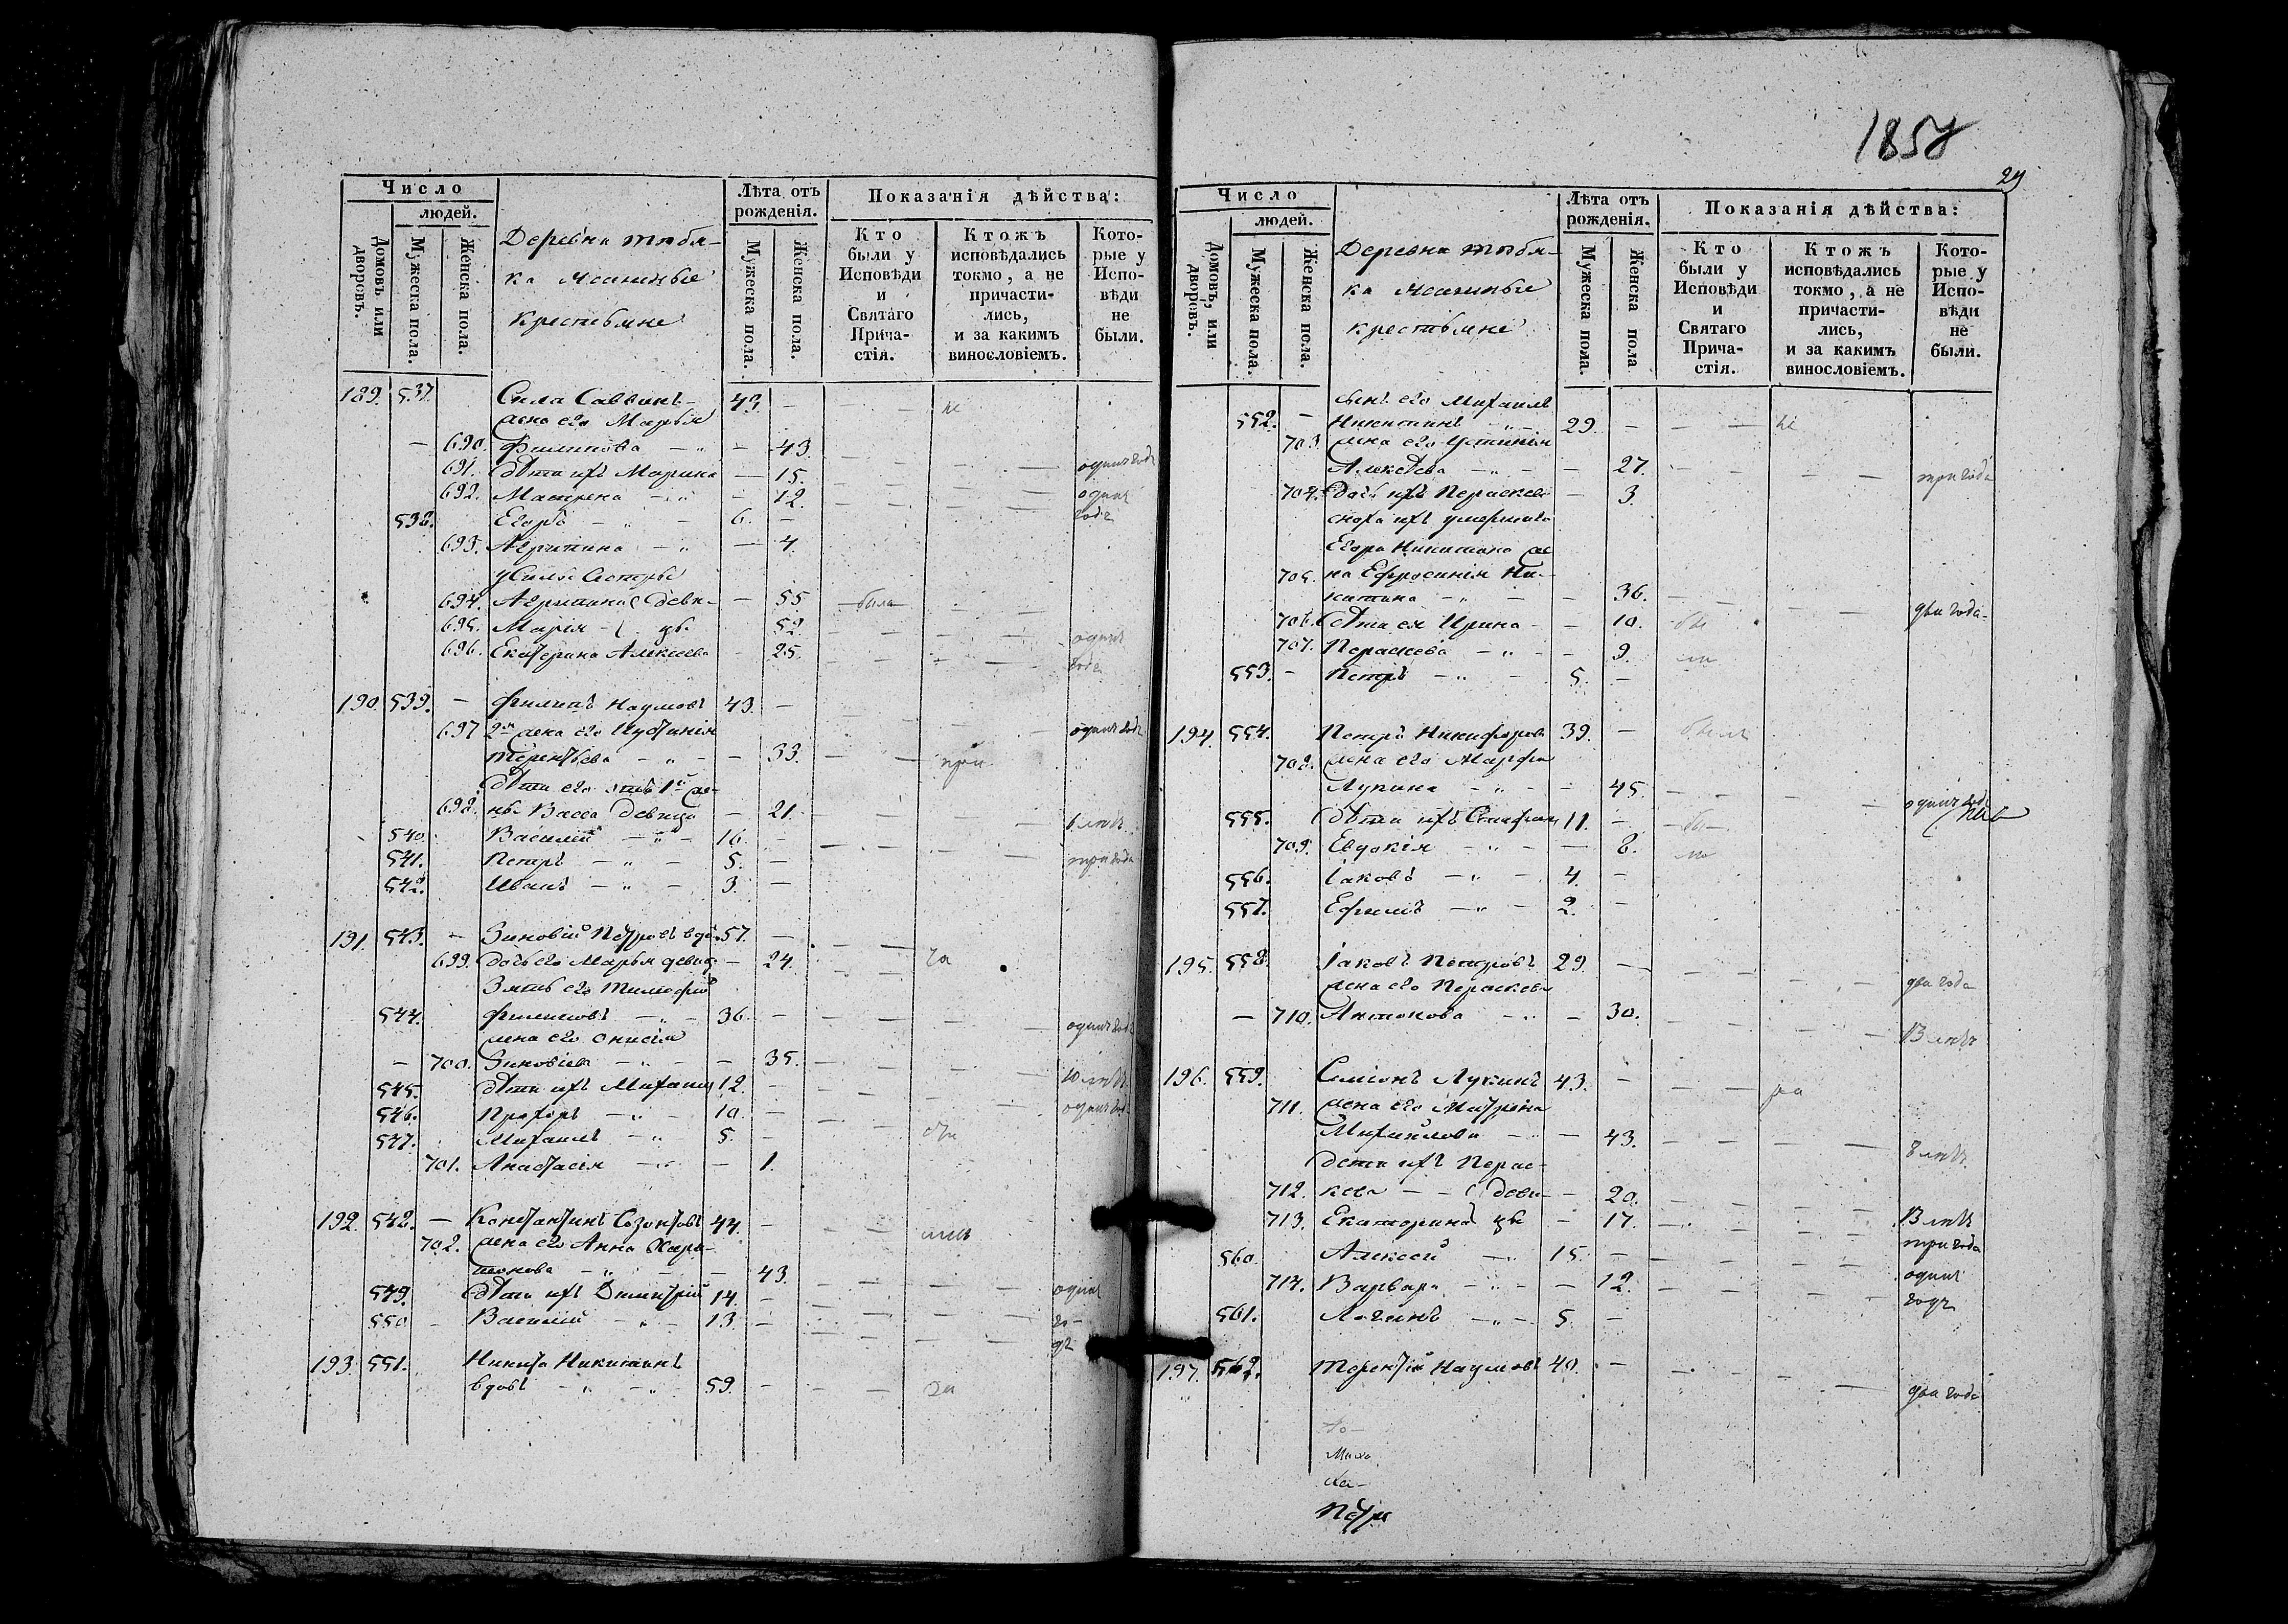 Число
людей.
Домовъ или дворовъ.
Мужеска пола.
Женска пола.
Деревня
крестьяне
Лѣта отъ рожденія.
Мужеска пола.
Женска пола.
Показанія дѣйства:
Кто были у Исповѣди и Святаго Прича-стія.
Ктожъ исповѣдались токмо, а не причасти-лись, и за какимъ винословіемъ.
Кото-рые у Испо-вѣди не были.
189. 537. Сила Саввинъ 43. —
жена его Марья
— 690. Филипова — 43.
691. дѣти ихъ Марина — 15. одинъ годъ
692. Матрена — 12. одинъ
538. Егоръ — 6. — годъ
693. Агрипина — 4.
у Силы сестры
694. Агрипина деви- — 55 была
695. Марья цы 52. одинъ
696. Екатерина Алексеева — 25. годъ
190. 539. — Филипъ Наумовъ 43. —
697 2я жена его Иустинія одинъ годъ
Терентьева — 33.
дѣти его отъ 1й же-
698. ны Васса девица — 21. 6 лѣтъ
540. Василій — 16. —
541. Петръ — 5. — три года
542. Иванъ — 3. —
191. 543. — Зиновій Петровъ вдо. 57. —
699. дочь его Марья девиц — 24.
Зять его Тимофей
544. Филиповъ — 36. — одинъ годъ
жена его Онисія
— 700. Зиновіева — 35.
545. дѣти ихъ 12. — 10 лѣтъ
546. Прохоръ — 10. — одинъ годъ
547. Михаилъ — 5. —
701. Анастасія — 1.
192. 548. — Константинъ Созонтовъ 44. —
702. жена его Анна Хари-
тонова — 43.
549. дѣти ихъ Димитрій 14. — одинъ
550 — Василій — 13. — го-
дъ
193. 551. Никита Никитинъ
вдовъ — 59. —
1858
29
Число
людей.
Домовъ, или дворовъ.
Мужеска пола.
Женска пола.
Деревня
крестьяне
Лѣта отъ рожденія.
Мужеска пола.
Женска пола
Показанія дѣйства:
Кто были у Исповѣди и Святаго Прича-стія.
Ктожъ исповѣдались токмо, а не причасти-лись, и за какимъ винословіемъ.
Кото-рые у Испо-вѣди не были.
сынъ его Михаилъ
552. — Никитинъ 29. —
703. жена его Устинія
Алексѣева — 27. три года
704. дочь ихъ Параскева — 3.
сноха ихъ умершаго
Егора Никитина же
705. на Ефросинія Ни-
китина — 36. два года
706. дѣти ея Ирина — 10. бы
707. Параскева — 9. ли
553. — Петръ — 5. —
194. 554. Петръ Никифоровъ 39. — былъ
708. жена его Марфа
Лукина — 45. одинъ годъ
555. дѣти ихъ Стефанъ 11. — бы
709. Евдокія — 8. ли
556. Іаковъ — 4. —
557. Ефимъ — 2. —
195. 558. Іаковъ Петровъ 29. — два года
жена его Параскева
— 710. Антонова — 30. 13 лѣтъ
196. 559. Симіонъ Лукинъ 43. —
711. жена его Матрена
Михайлова — 43. 8 лѣтъ
дети ихъ Парас-
712. кева — деви- — 20. 13 лѣтъ
713. Екатерина цы — 17. три года
560. Алексей — 15. — одинъ
714. Варвара — 12. годъ
561. Логинъ — 5. —
197. 562. Терентій Наумовъ 40. — два года